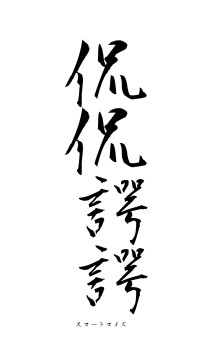 侃侃諤諤
スマートマイズ